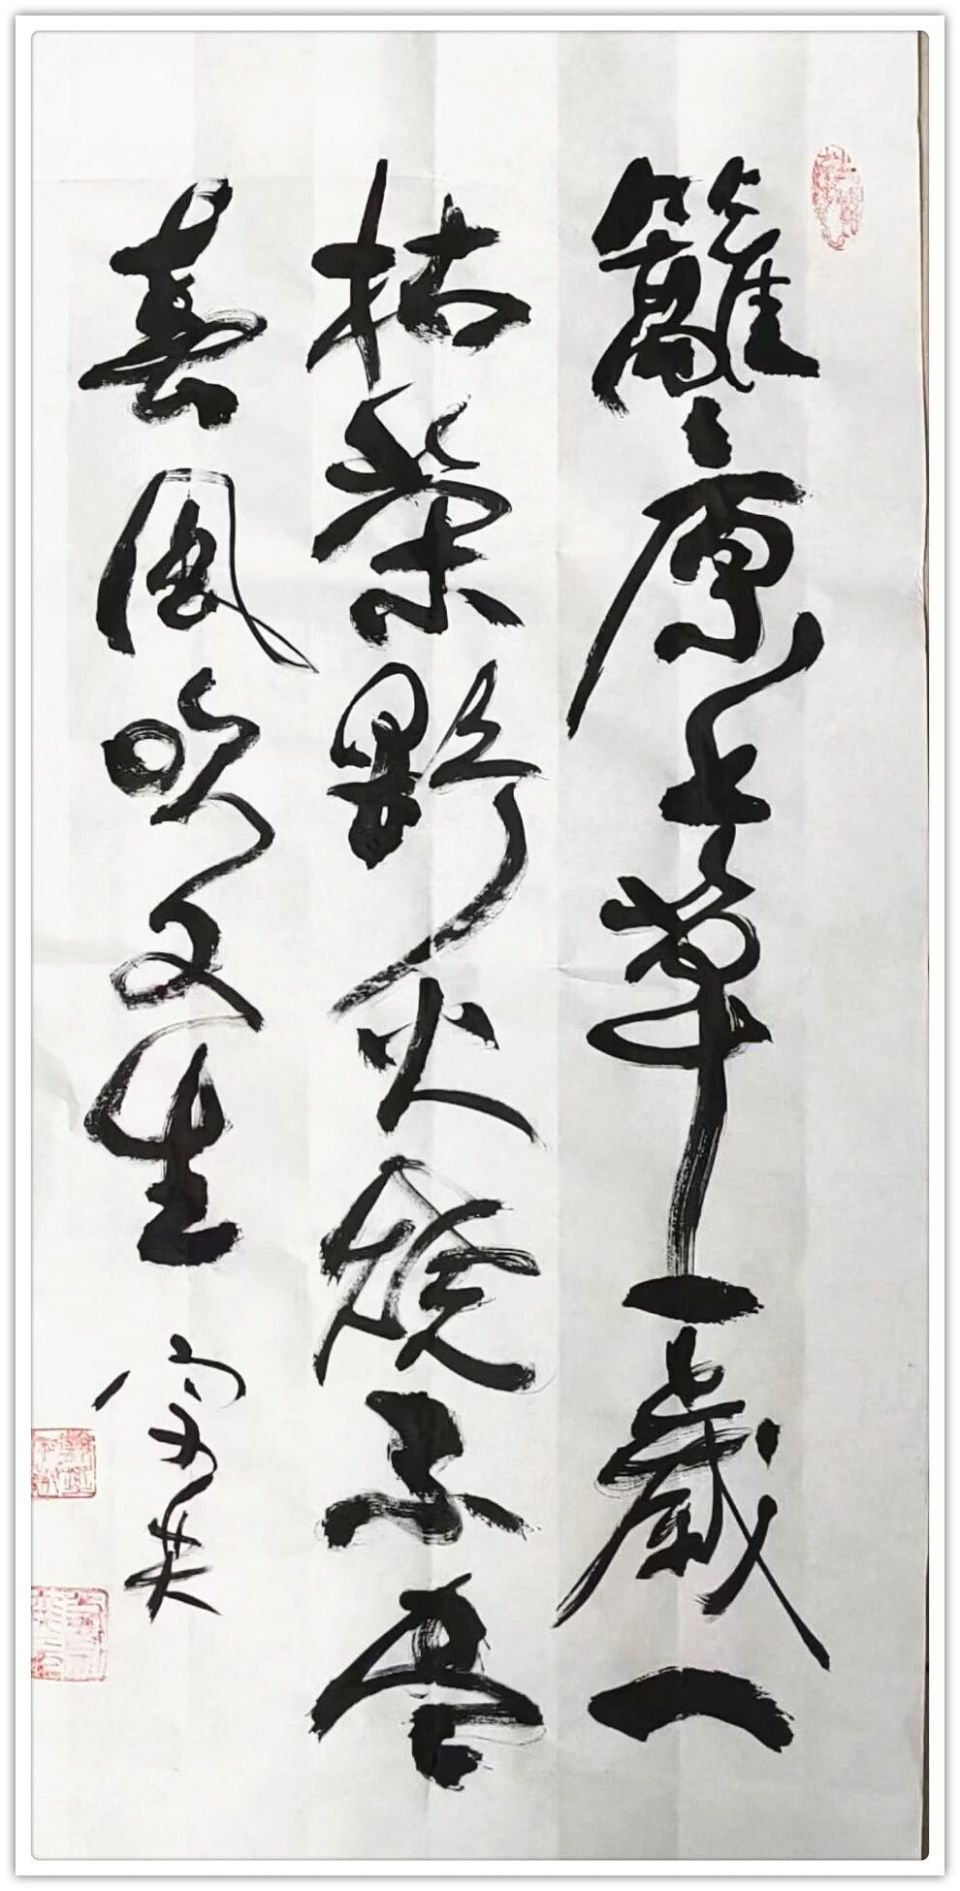 籬〻原上草一歲一
枯榮野火燒不尽
春風吹又生